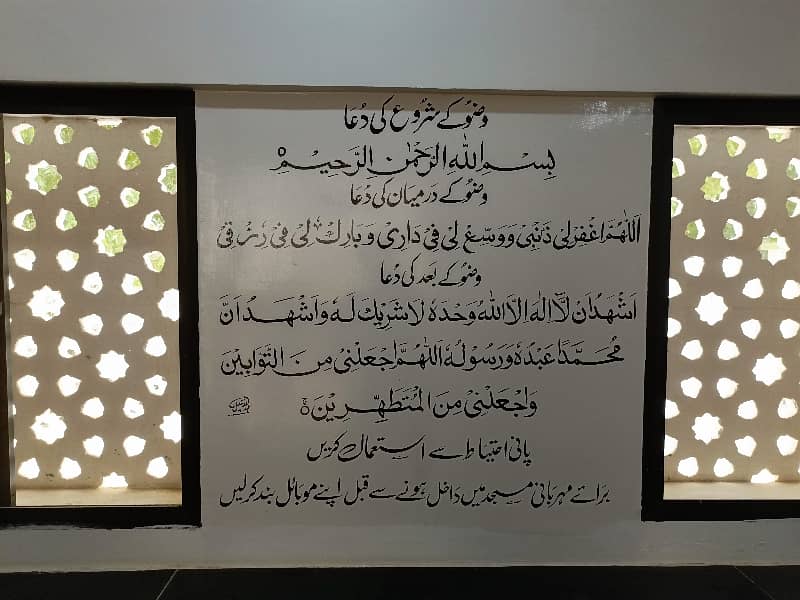 وضو کے شروع کی دُعا
بِسْمِ اللهِ الرَّحْمٰنِ الرَّحِيْمِ
وضو کے درمیان کی دُعا
اَللّٰهُمَّ اغْفِرْلِیْ ذَنْبِیْ وَوَسِّعْ لِیْ فِیْ دَارِیْ وَبَارِكْ لِیْ فِیْ رِزْقِیْ
وضو کے بعد کی دُعا
اَشْهَدُ اَنْ لَّا اِلٰهَ اِلَّا اللهُ وَحْدَهٗ لَا شَرِيْكَ لَهٗ وَاَشْهَدُ اَنَّ
مُحَمَّدًا عَبْدُهٗ وَرَسُوْلُهٗ اَللّٰهُمَّ اجْعَلْنِیْ مِنَ التَّوَّابِيْنَ
وَاجْعَلْنِیْ مِنَ الْمُتَطَهِّرِيْنَ ۃ
پانی احتیاط سے استعمال کریں
برائے مہربانی مسجد میں داخل ہونے سے قبل اپنے موبائل بند کرلیں